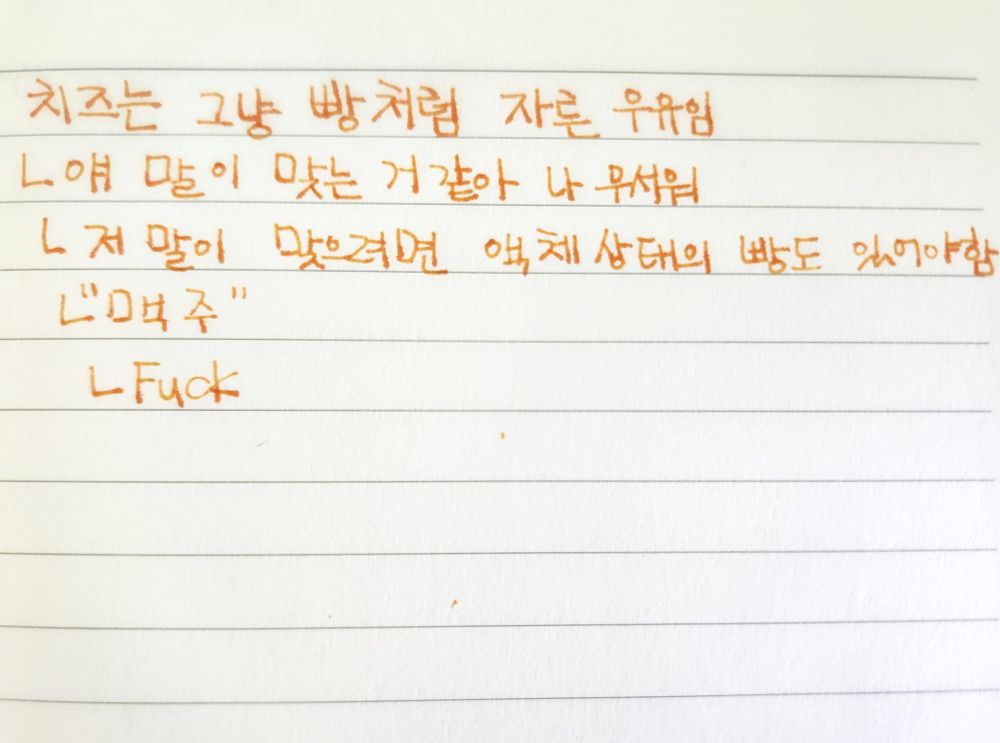 치즈는 그냥 빵처럼 자른 우유임
ㄴ얘 말이 맞는 거 같아 나 무서워
ㄴ저 말이 맞으려면 액체상태의 빵도 있어야함
ㄴ"맥주"
ㄴFuck